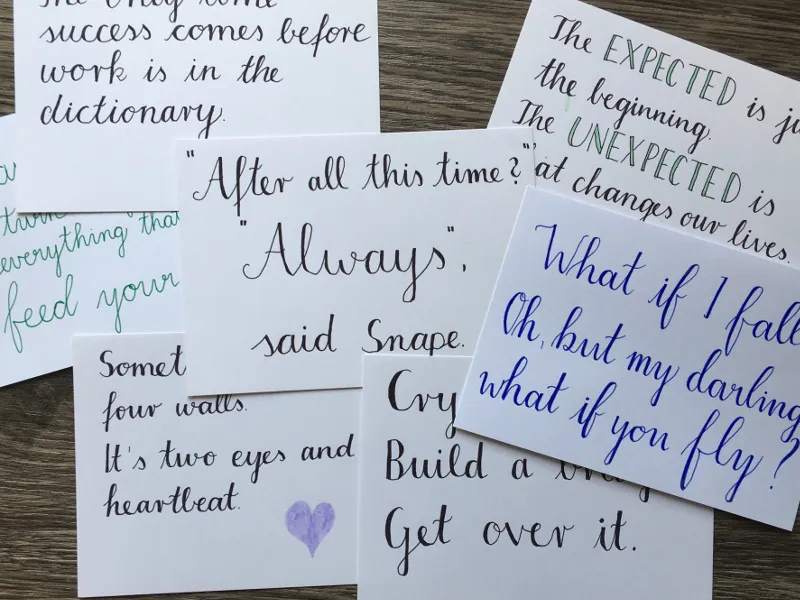 The only
success comes before
work is in the
dictionary.
The EXPECTED is
the beginning.
The UNEXPECTED is
at changes our lives.
turn
everything that
feed your
"After all this time?"
"Always",
said Snape.
What if I fall
Oh, but my darling
what if you fly?
four walls.
It's two eyes and
heartbeat.
Cry
Build a
Get over it.